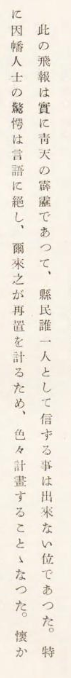 此の飛報は實に靑天の霹靂であつて、縣民誰一人として信ずる事は出來ない位であつた。特
に因幡人士の驚愕は言語に絕し、爾來之が再置を計るため、色々計畫することゝなつた。懷か